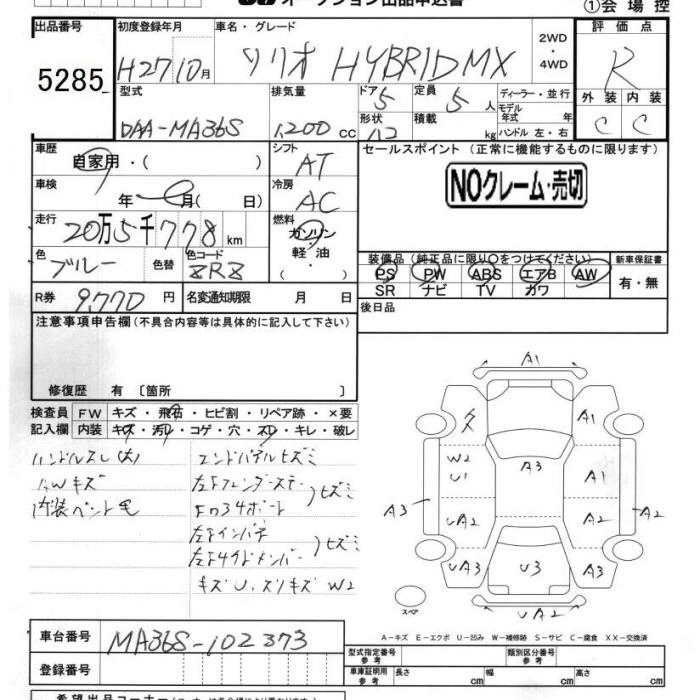 ①会場控
出品番号 5285
初度登録年月 H27/10月
車名・グレード ソリオ HYBRID MX
2WD・4WD
評価点 R
型式 DAA-MA36S
排気量 1,200 cc
ドア 5 形状
定員 5人 積載 kg
ディーラー・並行
モデル年式 年
ハンドル 左・右
外装 C 内装 C
車歴 自家用・( )
シフト AT
セールスポイント (正常に機能するものに限ります)
NOクレーム・売切
車検 年 月(日)
冷房 AC
走行 20万5千778km
燃料 ガソリン・軽油・
色 ブルー 色替 色コード ZRZ
装備品(純正品に限り○をつけてください) 新車保証書
PS PW ABS エアB AW 有・無
SR ナビ TV カワ
R券 9,770円 名変通知期限 月 日
後日品
注意事項申告欄(不具合内容等は具体的に記入して下さい)
修復歴 有〔箇所 〕
検査員 FW キズ・飛石・ヒビ割・リペア跡・×要
記入欄 内装 キズ・汚レ・コゲ・穴・スレ・キレ・破レ
ハンドルスレ(大)
AWキズ
内装ペント毛
エンドパネルヒズミ
キズU、スリキズW2
A1
A1
W2
U1
A3
A1
A3
UA2
A2
A2
UA3
U3
A3
UA2
スペア
A-キズ E-エクボ U-凹み W-補修跡 S-サビ C-腐食 XX-交換済
車台番号 MA36S-102373
型式指定番号 参考 類別区分番号 参考
登録番号
車庫証明用 参考 長さ cm 幅 cm 高さ cm